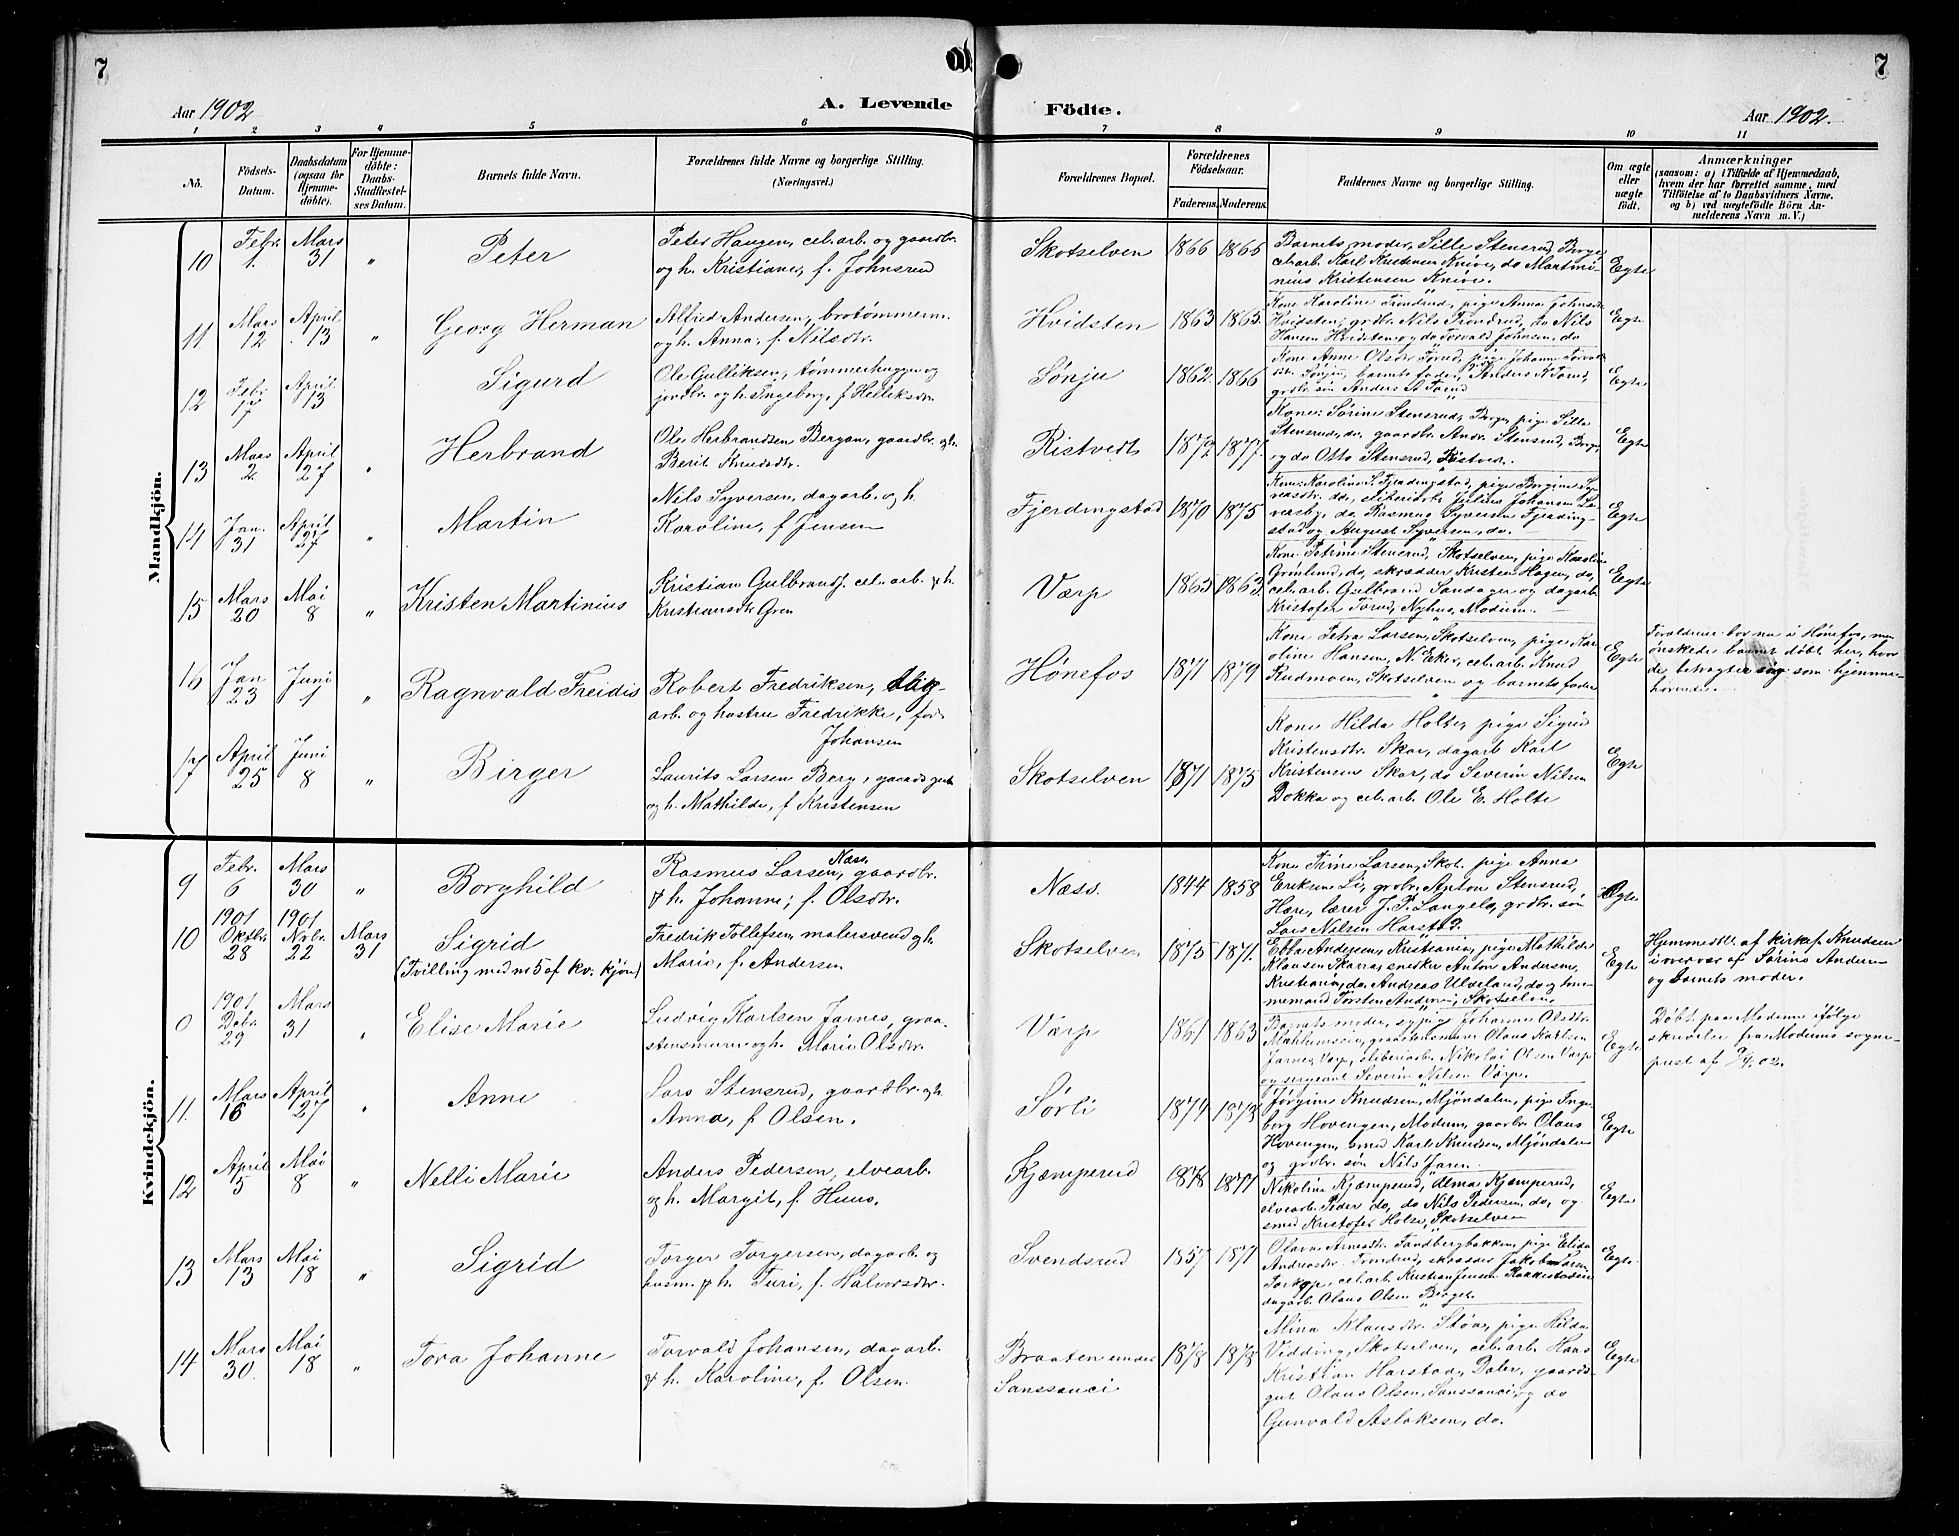 7
7
Aar 1902
A. Levende
Födte.
Aar 1902.
1 2 3 4 5 6 7 8 9 10 11
No.
Födsels-
Datum.
Daabsdatum
(ogsaa for
Hjemme-
döbte).
For Hjemme-
döbte:
Daabs-
Stadfæstel-
ses Datum.
Barnets fulde Navn.
Forældrenes fulde Navne og borgerlige Stilling.
(Næringsvei.)
Forældrenes Bopæl.
Forældrenes
Födselsaar.
Faderens. Moderens.
Faddernes Navne og borgerlige Stilling.
Om ægte
eller
uægte
födt.
Anmærkninger
(saasom: a) i Tilfælde af Hjemmedaab,
hvem der har forrettet samme, med
Tilföielse af to Daabsvidners Navne,
og b) ved uegtefödte Börn An-
melderens Navn m. V.)
Mandkjön.
10
Febr.
1.
Mars
31
"
Peter
Peter Haugen, cel.arb. og gaardbr.
og h. Kristiane, f. Johnsrud
Skotselven
1866 1865
Barnets moder, Sille Stensrud, Berge,
cel.arb. Karl Knutsen Knive, do Martini-
nius Kristensen Knive.
Egte
11
Mars
12
April
13
"
Georg Herman
Alfred Andersen, brotømmerm.
og h. Anna, f. Nilsdtr.
Hvidsten
1863 1865.
Kone Karoline Trondrud, pige Anna Johnsdtr.
Hvidsten, grdbr. Nils Trondrud, do Nils
Hansen Hvidsten og do Torvald Johnsen, do
Egte
12
Febr.
17
April
13
Sigurd
Ole Gulliksen, tømmerhugger og
jordbr. og h. Ingeborg, f. Helliksdtr.
Sønju
1862. 1866
Kone Anne Olsdtr. Torud, pige Johanne Torvalds-
dtr. Sønju, barnets fader, Anders N. Torud,
grdbr. søn Anders A. Torud
Egte
13
Mars
2.
April
27
"
Herbrand
Ole Herbrandsen Bergan, gaardbr. og h.
Berit Knudsdtr.
Ristvedt
1872 1877.
Kone: Sørine Stensrud, Berge, pige Sille
Stensrud, do, gaardbr. Andr. Stensrud, Berge,
og do Otto Stensrud, Ristvet.
Egte
14
Jan.
31
April
27
"
Martin
Nils Syversen, dagarb. og h.
Karoline, f. Jensen
Fjerdingstad
1870 1875
Kone: Karoline S. Fjerdingstad, pige Bergine Sy-
versdtr. do, sliberiarb. Julius Johansen La-
vesby, do Rasmus Syversen Fjerding-
stad og August Syversen, do.
Egte
15
Mars
20
Mai
8
"
Kristen Martinius
Kristian Gulbrands. cel.arb. & h.
Kristiansdtr. Gren
Værp
1865 1863.
Kone Petrine Stensrud, Skotselven, pige Karoline
Grønlund, do, skrædder Kristen Hagen, do,
cel.arb. Gulbrand Sandager og dagarb.
Kristofer Torud, Nyhus, Modum.
Egte
16
Jan
23
Juni
1
"
Ragnvald Freidis
Robert Fredriksen, slig-
arb. og hustru Fredrikke, fød
Johansen
Hønefos
1871 1879
Kone Petra Larsen, Skotselven, pige Kar-
oline Hansen, N. Eker, cel.arb. Knud
Rudmoen, Skotselven og barnets fader
Egte
Forældrene bor nu i Hønefos, men
ønskede barnet døbt her, hvor
de betragter sig som hjemme-
hørende.
17
April
25
Juni
8
"
Birger
Laurits Larsen Berg, gaardsgut
og h. Mathilde, f. Kristensen
Skotselven
1871 1875
Kone Hilda Holte, pige Sigrid
Kristensdtr. Skar, dagarb Karl
Kristensen Skar, do Severin Nilsen
Dokka og cel.arb. Ole E. Holte
Egte
Kvindekjön.
9
Febr.
6
Mars
30
"
Borghild
Næss,
Rasmus Larsen, gaardbr.
& h. Johanne, f. Olsdtr.
Næss.
1844 1858
Kone Trine Larsen, Skot. pige Anna
Eriksen Li, grdbr. Anton Stensrud,
Hære, lærer J. P. Langelo, grdbr. søn
Lars Nilsen Harstad.
Egte
10
1901
Oktbr.
28
1901
Novbr.
22
Mars
31
Sigrid
(Tvilling med no 5 af kv. kjøn)
Fredrik Tollefsen, malersvend og h.
Marie, f. Andersen
Skotselven
1875 1871.
Ebba Andersen, Kristiania, pige Mathilde
Klausen Skarra, snedker Anton Andersen,
Kristiania, do Andreas Ulveland, do og tøm-
mermand Torsten Andersen, Skotselven.
Egte
Hjemmedbt. af kirkes. Knudsen
i overvær af Sørine Andersen
og barnets moder.
0
1901
Debr.
29
Mars
31
"
Elise Marie
Ludvig Karlsen Jarnes, graa-
stensmurer og h. Marie Olsdtr.
Værp
1861 1863
Barnets moder, sypige Johanne Olsdtr.
graastensmurer Olaus Karlsen
Jarnes, Værp, sliberiarb. Nikolai Olsen Værp
og sergeant Severin Nilsen Værp.
Egte
Døbt paa Modum ifølge
skrivelse fra Modums sogne-
prest af 7/4.02.
11.
Mars
16
April
27
"
Anne
Lars Stensrud, gaardbr. og h.
Anna, f. Olsen.
Sørli
1874 1873
Jørgine Knudsen, Mjøndalen, pige Inge-
borg Hovengen, Modum, gaardbr. Olaus
Hovengen, smed Karl Knudsen, Mjøndalen
og grdbr. søn Nils Jaren.
Egte
12
April
5
Mai
8
"
Nelli Marie
Anders Pedersen, elvearb.
og h. Margit, f. Huus.
Kjæmperud
1878 1877
Nikoline Kjæmperud, Alma Kjæmperud,
elvearb. Peder do, do Nils Pedersen, do, og
smed Kristofer Holse, Skotselven
Egte
13
Mars
13
Mai
18
"
Sigrid
Torger Torgersen, dagarb. og
husm. & h. Turi, f. Halvorsdtr.
Svendsrud
1857 1871
Olava Arnesdtr. Sandbergbakken, pige Elida
Andreasdtr. Trondrud, skrædder Jakob
Torkop, cel.arb. Kristian Jensen Kokkestadeie
dagarb. Olaus Olsen Berget.
Egte
14
Mars
30.
Mai
18
"
Tora Johanne
Torvald Johansen, dagarb.
& h. Karoline, f. Olsen.
Braaten under
Sanssouci
1878 1878
Mina Klausdtr. Støa, pige Hilda
Vidding, Skotselven, cel.arb. Hans
Kristian Harstad, Daler, gaards-
gut Olaus Olsen, Sanssouci, og do
Gunvald Aslaksen, do.
Egte